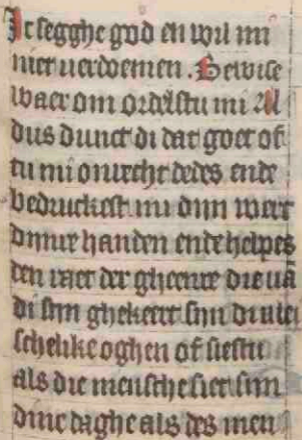 Ic segghe god en wil mi
niet verdoemen. Bewise
waer om ordelstu mi Al
dus dunct di dat goet of
tu mi onrecht dedes ende
bedruckest mi dijn werc
dinre handen ende helpes
den raet der gheenre die vā
di sijn ghekeert sijn di vlei
schelike oghen of siestu
als die mensche siet sijn
dine daghe als des men